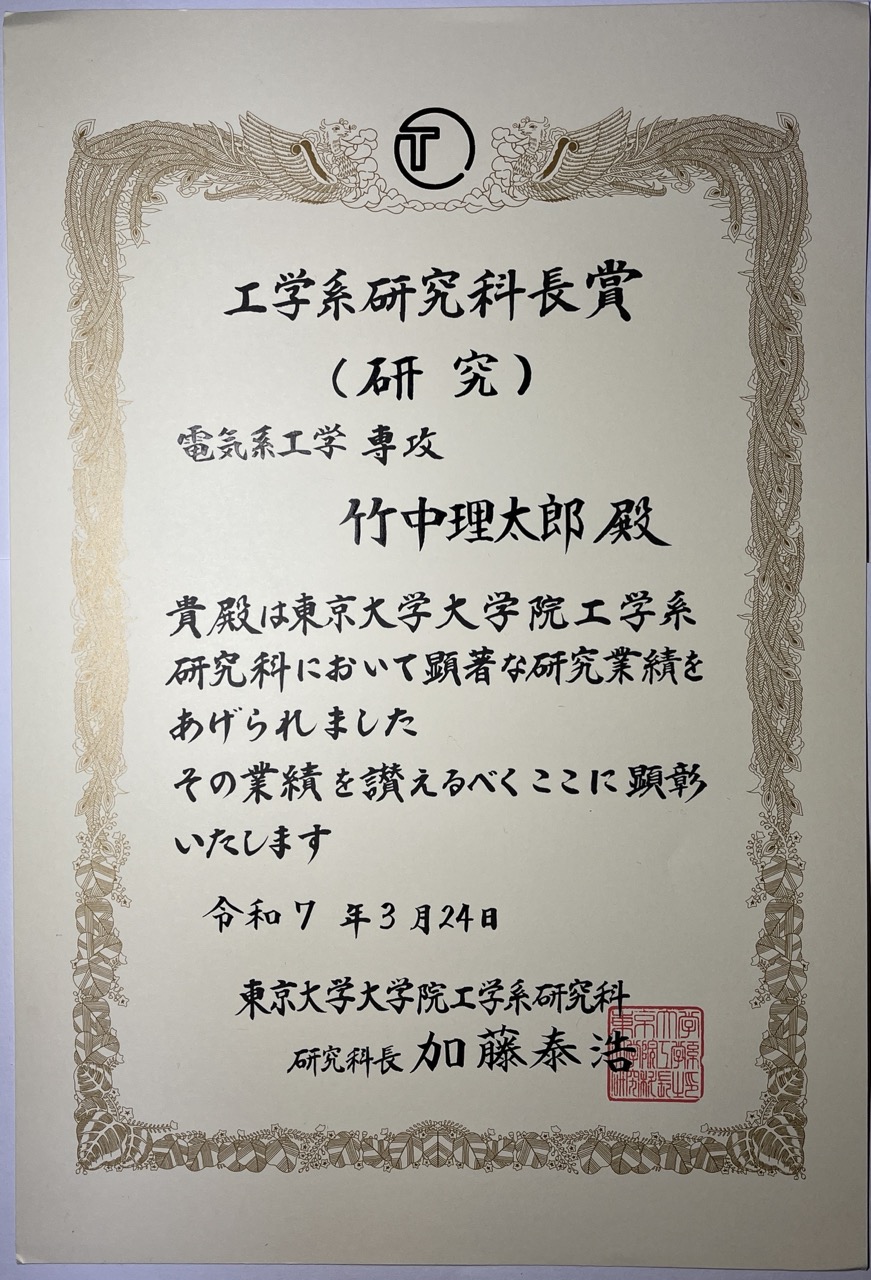 T
工学系研究科長賞
(研究)
電気系工学 専攻
竹中理太郎 殿
貴殿は東京大学大学院工学系
研究科において顕著な研究業績を
あげられました
その業績を讃えるべくここに顕彰
いたします
令和7年3月24日
東京大学大学院工学系研究科
研究科長 加藤泰浩